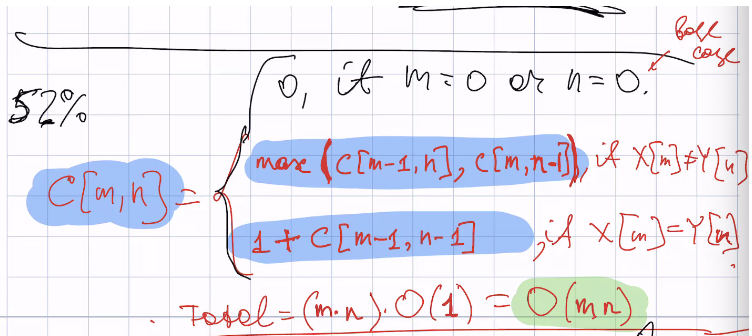 base
case
0, if m=0 or n=0.
52%
max (C[m-1,n], C[m,n-1]), if X[m]≠Y[n]
C[m,n] =
1 + C[m-1,n-1] , if X[m]=Y[n]
Total = (m·n)·O(1) = O(mn)